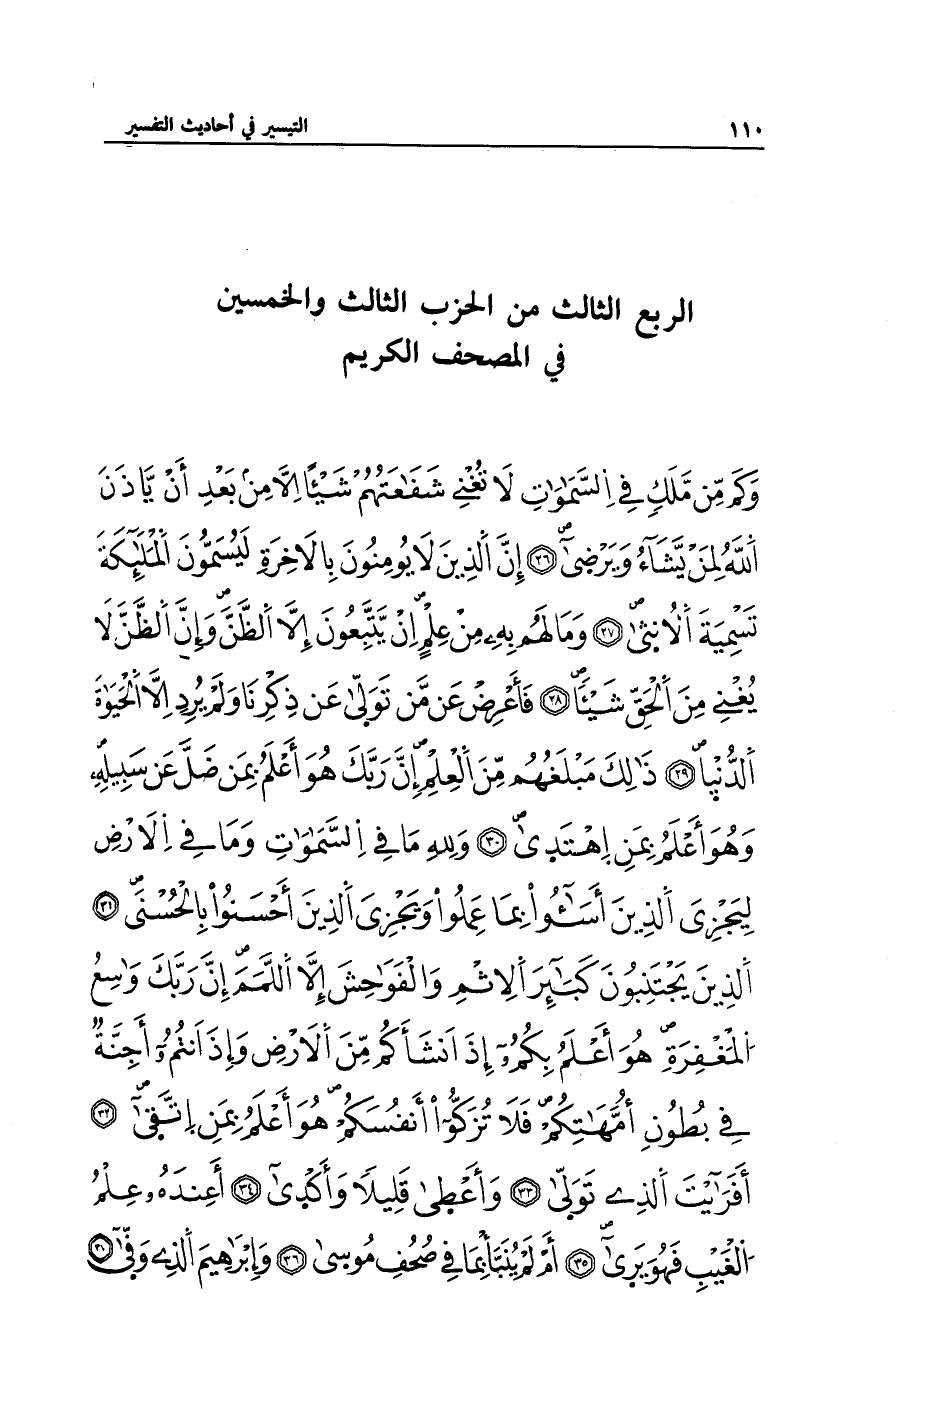 ١١٠ التيسير في أحاديث التفسير
الربع الثالث من الحزب الثالث والخمسين
في المصحف الكريم
وَكَم مِّن مَّلَكٍ فِے اِ۬لسَّمَٰوَٰتِ لَا تُغْنِے شَفَٰعَتُهُمْ شَيْـًٔا اِلَّا مِنۢ بَعْدِ أَنْ يَّاذَنَ
اَ۬للَّهُ لِمَنْ يَّشَآءُ وَيَرْضَىٰٓ ۖ ٢٦ إِنَّ اَ۬لذِينَ لَا يُومِنُونَ بِالَاخِرَةِ لَيُسَمُّونَ اَ۬لْمَلَٰٓئِكَةَ
تَسْمِيَةَ اَ۬لُانث۪ىٰ ۖ ٢٧ وَمَا لَهُم بِهِۦ مِنْ عِلْمٍ ۖ اِنْ يَّتَّبِعُونَ إِلَّا اَ۬لظَّنَّ ۖ وَإِنَّ اَ۬لظَّنَّ لَا
يُغْنِے مِنَ اَ۬لْحَقِّ شَيْـًٔا ۖ ٢٨ فَأَعْرِضْ عَن مَّن تَوَلّ۪ىٰ عَن ذِكْرِنَا وَلَمْ يُرِدِ اِلَّا اَ۬لْحَيَوٰةَ
اَ۬لدُّنْي۪ا ۖ ٢٩ ذَٰلِكَ مَبْلَغُهُم مِّنَ اَ۬لْعِلْمِ ۖ إِنَّ رَبَّكَ هُوَ أَعْلَمُ بِمَن ضَلَّ عَن سَبِيلِهِۦ
وَهُوَ أَعْلَمُ بِمَنِ اِ۪هْتَد۪ىٰ ۖ ٣٠ وَلِلهِ مَا فِے اِ۬لسَّمَٰوَٰتِ وَمَا فِے اِ۬لَارْضِ
لِيَجْزِيَ اَ۬لذِينَ أَسَٰٓـُٔواْ بِمَا عَمِلُواْ وَيَجْزِيَ اَ۬لذِينَ أَحْسَنُواْ بِالْحُسْنَى ۖ ٣١
اَ۬لذِينَ يَجْتَنِبُونَ كَبَٰٓئِرَ اَ۬لِاثْمِ وَالْفَوَٰحِشَ إِلَّا اَ۬للَّمَمَ ۖ إِنَّ رَبَّكَ وَٰسِعُ
اُ۬لْمَغْفِرَةِ ۖ هُوَ أَعْلَمُ بِكُمُۥٓ إِذَ اَنشَأَكُم مِّنَ اَ۬لَارْضِ وَإِذَ اَنتُمُۥٓ أَجِنَّةٌ
فِے بُطُونِ أُمَّهَٰتِكُمْ ۖ فَلَا تُزَكُّوٓاْ أَنفُسَكُمْ ۖ هُوَ أَعْلَمُ بِمَنِ اِ۪تَّق۪ىٰٓ ۖ ٣٢
أَفَرَٰٓيْتَ اَ۬لذِے تَوَلّ۪ىٰ ٣٣ وَأَعْط۪ىٰ قَلِيلًا وَأَكْد۪ىٰٓ ٣٤ أَعِندَهُۥ عِلْمُ
اُ۬لْغَيْبِ فَهُوَ يَر۪ىٰٓ ۖ ٣٥ أَمْ لَمْ يُنَبَّأْ بِمَا فِے صُحُفِ مُوس۪ىٰ ٣٦ وَإِبْرَٰهِيمَ اَ۬لذِے وَفّ۪ىٰٓ